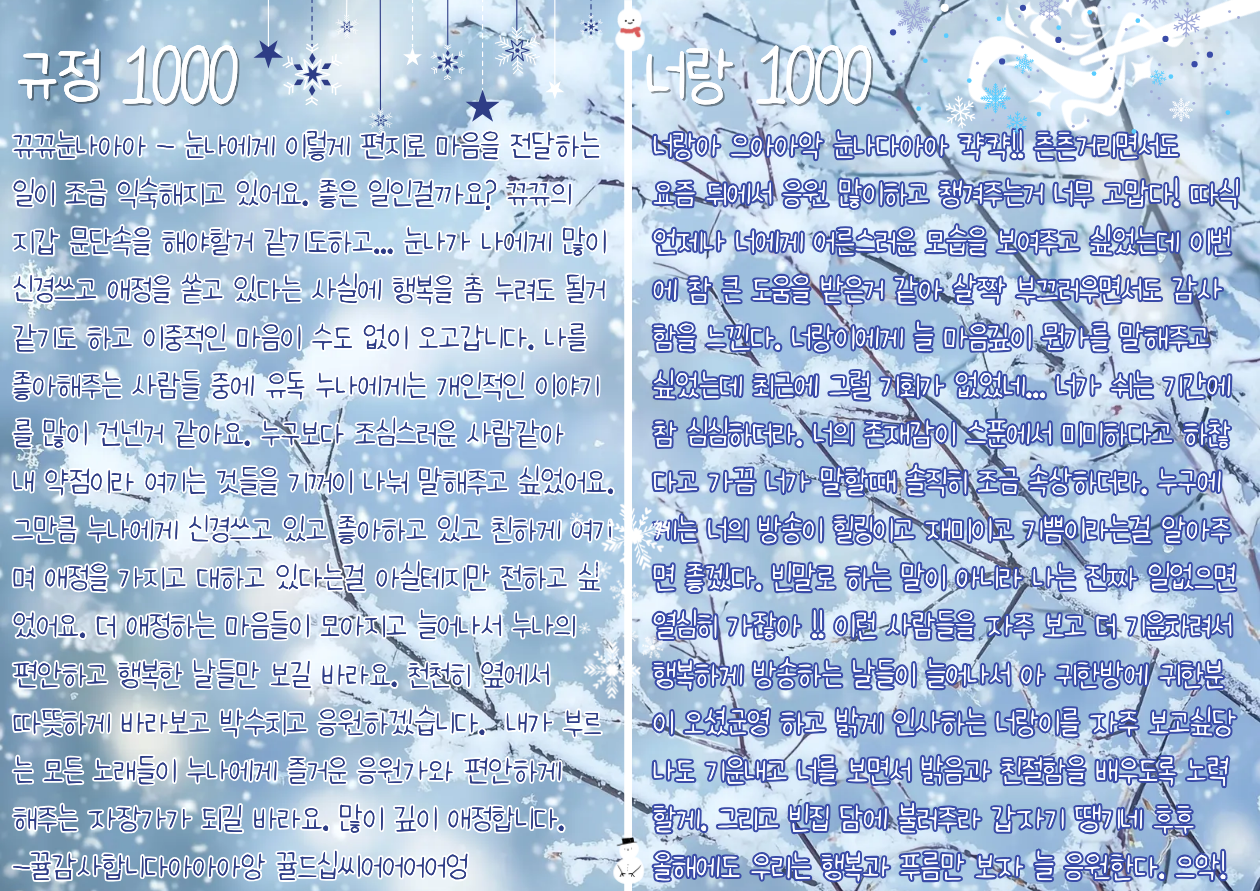 규정 1000
뀨뀨눈나아아 ~ 눈나에게 이렇게 편지로 마음을 전달하는
일이 조금 익숙해지고 있어요. 좋은 일인걸까요? 뀨뀨의
지갑 문단속을 해야할거 같기도하고... 눈나가 나에게 많이
신경쓰고 애정을 쏟고 있다는 사실에 행복을 좀 누려도 될거
같기도 하고 이중적인 마음이 수도 없이 오고갑니다. 나를
좋아해주는 사람들 중에 유독 누나에게는 개인적인 이야기
를 많이 건넨거 같아요. 누구보다 조심스러운 사람같아
내 약점이라 여기는 것들을 기꺼이 나눠 말해주고 싶었어요.
그만큼 누나에게 신경쓰고 있고 좋아하고 있고 친하게 여기
며 애정을 가지고 대하고 있다는걸 아실테지만 전하고 싶
었어요. 더 애정하는 마음들이 모아지고 늘어나서 누나의
편안하고 행복한 날들만 보길 바라요. 천천히 옆에서
따뜻하게 바라보고 박수치고 응원하겠습니다. 내가 부르
는 모든 노래들이 누나에게 즐거운 응원가와 편안하게
해주는 자장가가 되길 바라요. 많이 깊이 애정합니다.
-뀰감사합니다아아아아앙 뀰드십씨어어어어엉
너랑 1000
너랑아 으아아악 눈나다아아 캭캭!! 츤츤거리면서도
요즘 뒤에서 응원 많이하고 챙겨주는거 너무 고맙다! 따식
언제나 너에게 어른스러운 모습을 보여주고 싶었는데 이번
에 참 큰 도움을 받은거 같아 살짝 부끄러우면서도 감사
함을 느낀다. 너랑이에게 늘 마음깊이 뭔가를 말해주고
싶었는데 최근에 그럴 기회가 없었네... 너가 쉬는 기간에
참 심심하더라. 너의 존재감이 스푼에서 미미하다고 하찮
다고 가끔 너가 말할때 솔직히 조금 속상하더라. 누구에
게는 너의 방송이 힐링이고 재미이고 기쁨이라는걸 알아주
면 좋겠다. 빈말로 하는 말이 아니라 나는 진짜 일없으면
열심히 가잖아 !! 이런 사람들을 자주 보고 더 기운차려서
행복하게 방송하는 날들이 늘어나서 아 귀한방에 귀한분
이 오셨군영 하고 밝게 인사하는 너랑이를 자주 보고싶당
나도 기운내고 너를 보면서 밝음과 친절함을 배우도록 노력
할게. 그리고 빈집 담에 불러주라 갑자기 땡기네 후후
올해에도 우리는 행복과 푸름만 보자 늘 응원한다. 으악!